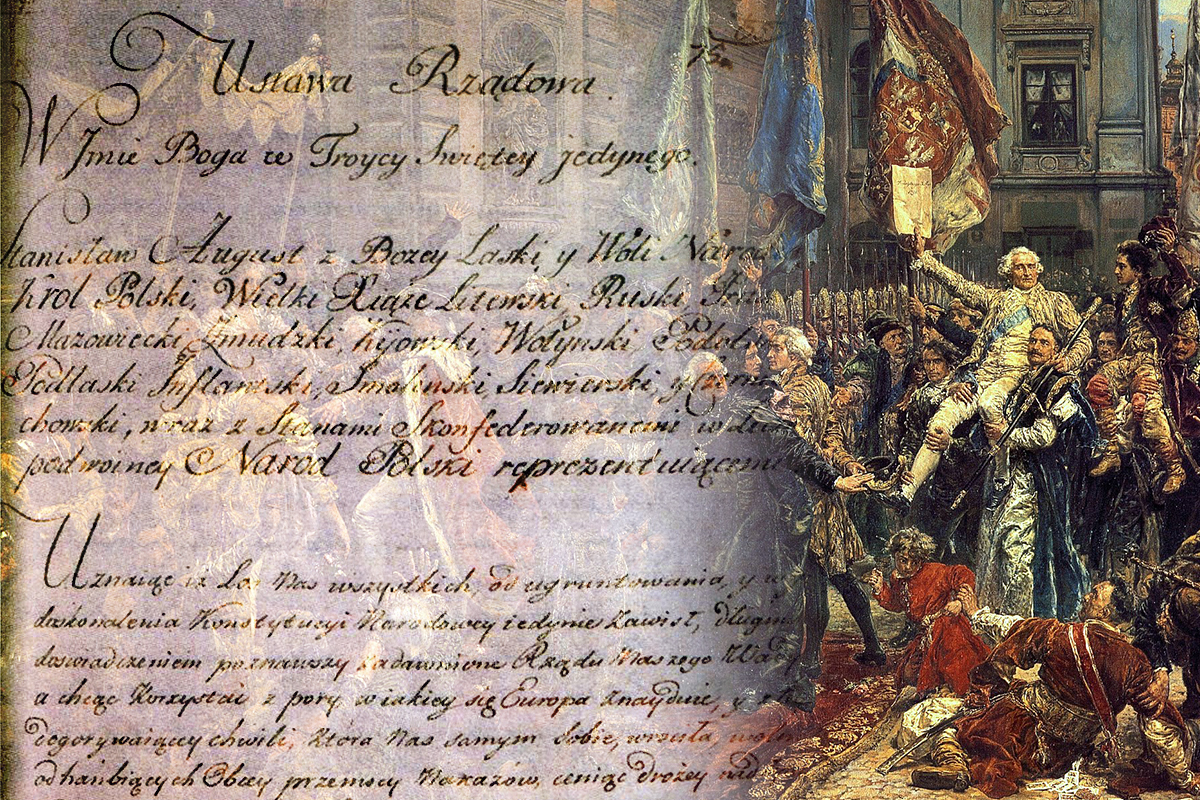 Ustawa Rządowa.
W Jmie Boga w Troycy Swiętey jedynego.
Stanisław August z Bozey Laski y Woli Narod
Krol Polski, Wielki Xiąże Litewski, Ruski
Mazowiecki, Zmudzki, Kijowski, Wołynski, Podol
Podlaski Inflantski, Smolenski Siewierski, y Czerni
chowski, wraz z Stanami Skonfederowanemi w licz
podwoiney Narod Polski reprezentuiącemi
Uznaiąc iz Los Nas wszystkich, od ugruntowania, y w
doskonalenia Konstytucyi Narodowey iedynie zawisł, długim
doswiadczeniem poznawszy zadawnione Rządu Naszego Wad
a chcąc korzystać z pory w iakiey się Europa znayduie, y z
dogorywaiącey chwili, która Nas samym Sobie, wrociła, woln
od hanbiących Obcey przemocy Nakazów, ceniąc drożey nad